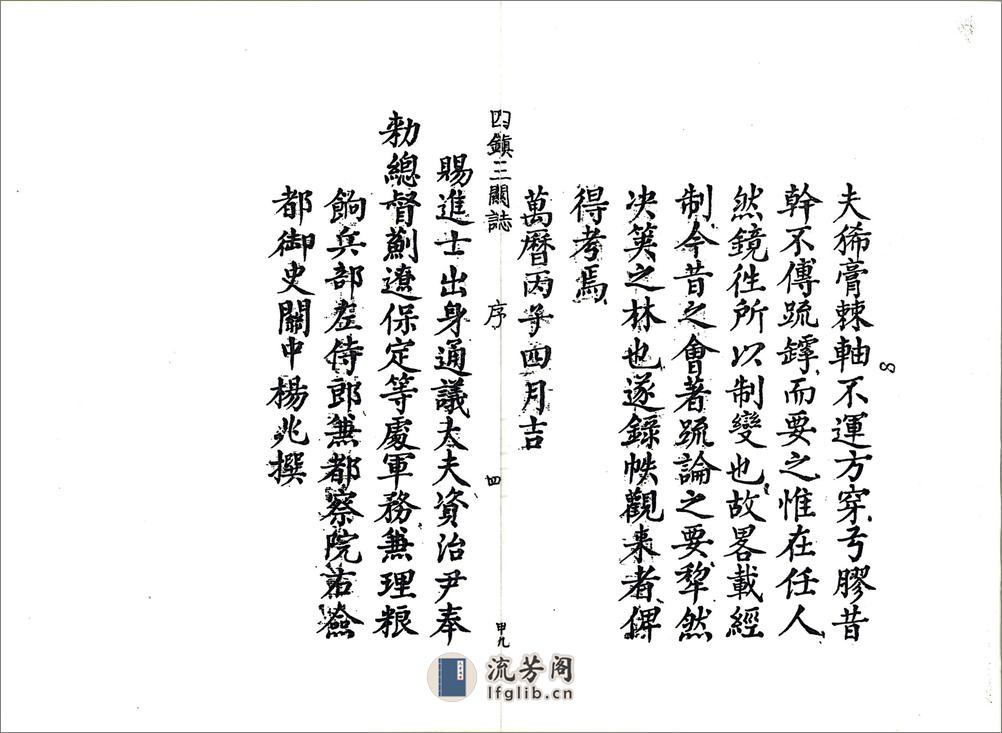 8
夫狶膏棘軸不運方穿弓膠昔
幹不傅䟽罅而要之惟在任人
然鏡徃所以制變也故畧載經
制今昔之會著䟽論之要犂然
决筴之林也遂錄帙觀来者俾
得考焉
萬曆丙子四月吉
四鎮三關誌 序 四 申九
賜進士出身通議大夫資治尹奉
勑總督薊遼保定等處軍務兼理粮
餉兵部左侍郎兼都察院右僉
都御史關中楊兆撰
流芳阁
lfglib.cn